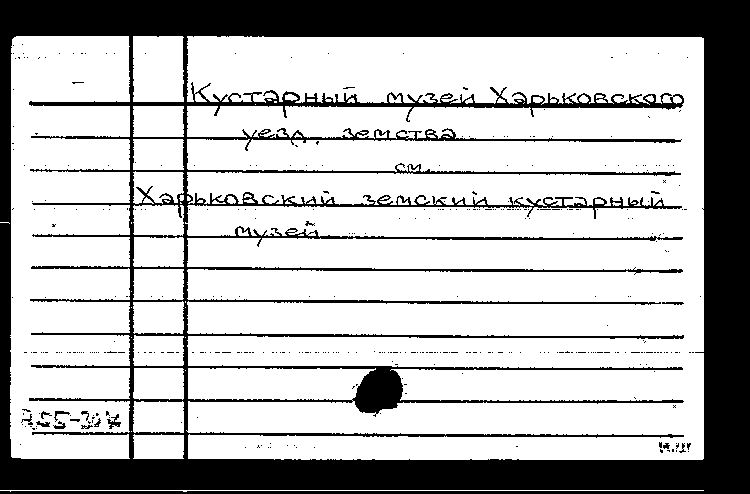 Кустарный музей Харьковского
уезд. земства
см.
Харьковский земский кустарный
музей